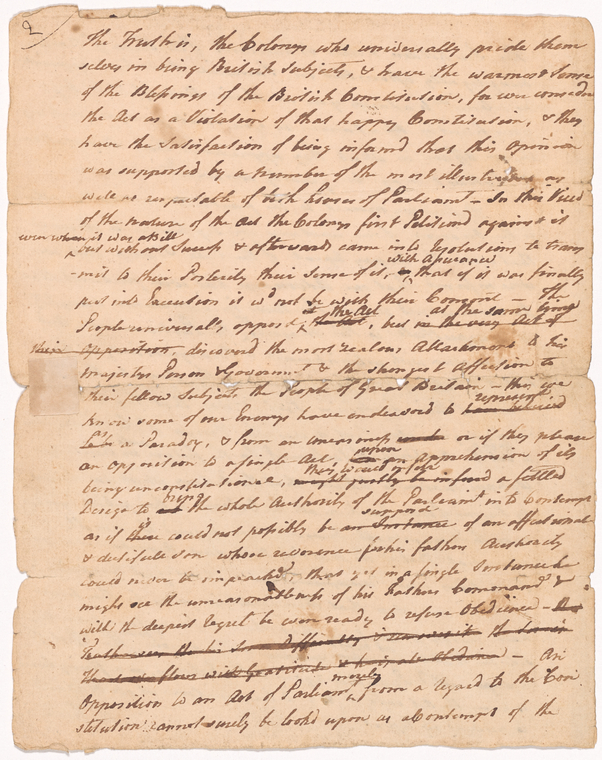 2
The Truth is, the Colonys who universally pride them
selves in being British Subjects, & have the warmest Sense
of the Blessings of the British Constitution, for we consider
the Act as a Violation of that happy Constitution, & they
have the Satisfaction of being informd that this Opinion
was supported by a number of the most illustrious as
well as respectable of both houses of Parliamt - In this View
of the nature of the Act the Colonys first Petitiond against it
even when it was a Bill
but without Success & afterwards came into Resolutions to trans
with Assurance
mit to their Posterity their Sense of it, that if it was finally
put into Execution it wd not be with their Consent - The
the Act at the same time
People universaly opposd but in the very Act of
their Opposition, discovered the most zealous Attachment to his
Majestys Person & Governmt & the strongest Affection to
their fellow Subjects the People of Great Britain - this we
represent
know some of our Enemys have endeavord to have
as a Paradox, & from an uneasiness or if they please
upon
an opposition to a single Act, an Apprehension of its
they would infer
being unconstitutional, might justly be inferd a settled
bring
Design to the whole Authority of the Parliamt into Contempt
suppose
as if there could not possibly be an Instance of an affectionate
& dutifull Son whose reverence for his fathers Authority
could never be impeachd, that yet in a single Instance he
might see the unreasonableness of his Fathers Command &
with the deepest regret be even ready to refuse Obedience
flows with Gratitude - An
merely
Opposition to an Act of Parliamt from a regard to the Con
stitution cannot surely be lookd upon as a Contempt of the